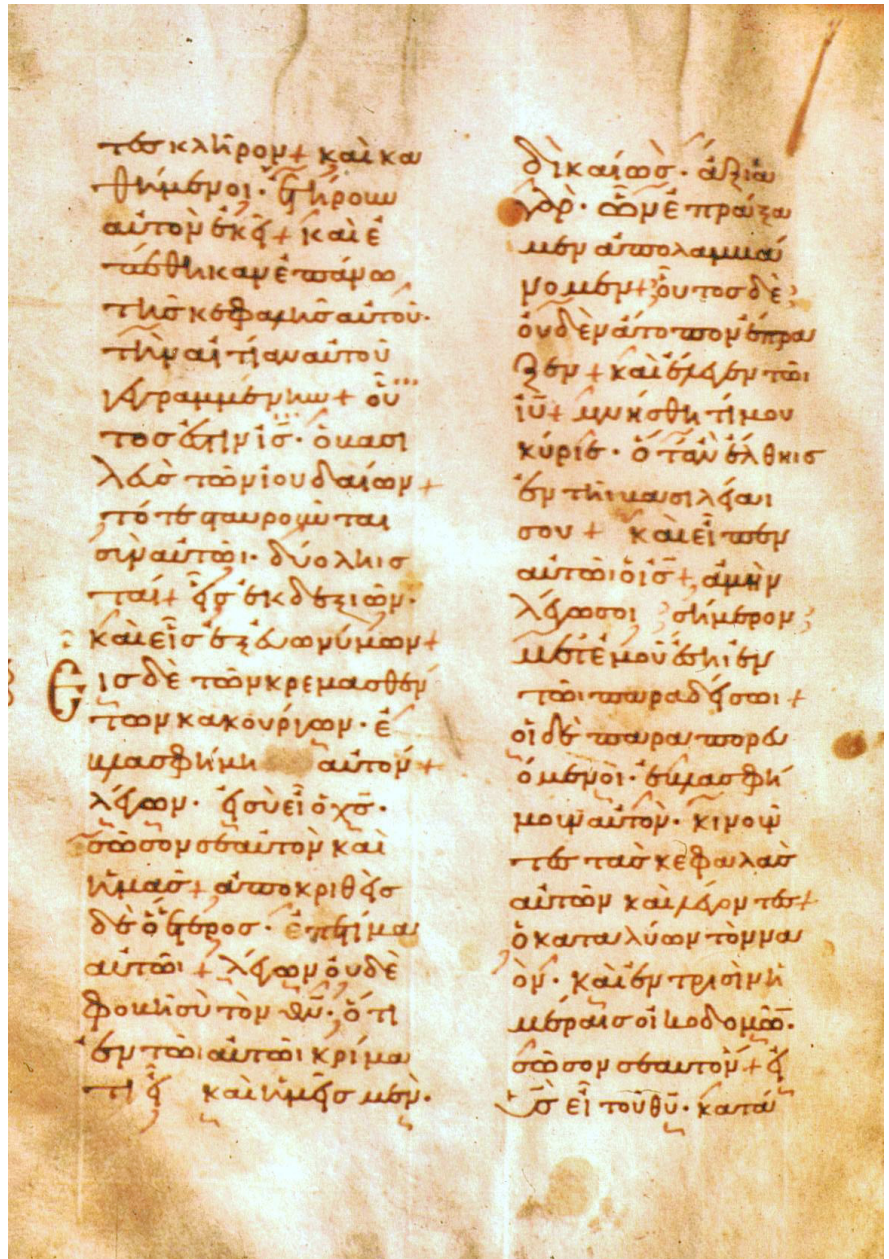 τες κλῆρον + καὶ κα
θήμενοι · ἐτήρουν
αὐτὸν ἐκεῖ + καὶ ἐ
πέθηκαν ἐπάνω
τῆς κεφαλῆς αὐτοῦ ·
τὴν αἰτίαν αὐτοῦ
γεγραμμένην + οὗ
τος ἐστιν ἰς · ὁ βασι
λεὺς τῶν ἰουδαίων +
τότε σταυροῦνται
σὺν αὐτῶι · δύο ληισ
ταί + εἷς ἐκ δεξιῶν ·
καὶ εἷς ἐξ εὐωνύμων +
Εις δὲ τῶν κρεμασθέν
των κακούργων · ἐ
βλασφήμη αὐτόν +
λέγων · εἰ σὺ εἶ ὁ χς ·
σῶσον σεαυτὸν καὶ
ἡμᾶς + ἀποκριθεὶς
δὲ ὁ ἕτερος · ἐπετίμα
αὐτῶι + λέγων οὐδὲ
φοβῆι σὺ τὸν θν · ὅτι
ἐν τῶι αὐτῶι κρίμα
τι εἶ καὶ ἡμεῖς μὲν ·
δικαίως · ἄξια
γὰρ · ὧν ἐπράξα
μεν ἀπολαμβά
νομεν + οὗτος δὲ
οὐδὲν ἄτοπον ἔπρα
ξεν + καὶ ἔλεγεν τῶι
ιυ + μνήσθητί μου
κύριε · ὅταν ἔλθηις
ἐν τῆι βασιλείαι
σου + καὶ εἶπεν
αὐτῶι ὁ ις + ἀμὴν
λέγω σοι σήμερον
μετ ἐμοῦ ἔσηι ἐν
τῶι παραδείσωι +
οἱ δὲ παραπορευ
όμενοι · ἐβλασφή
μουν αὐτὸν · κινοῦν
τες τὰς κεφαλὰς
αὐτῶν καὶ λέγοντες +
ὁ καταλύων τὸν να
ὸν · καὶ ἐν τρισὶν ἡ
μέραις οἰκοδομῶν ·
σῶσον σεαυτόν + εἰ
υς εἶ τοῦ θυ · κατά